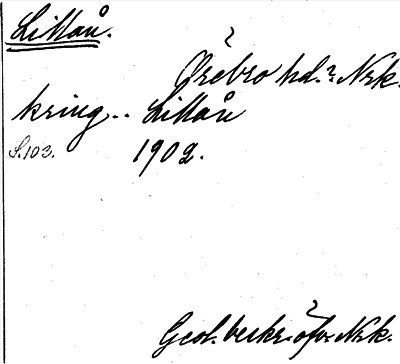 Lillån.
?
Örebro hd.? Nrk.
kring .. Lillån
S. 103. 1902.
Geol. beskr. öfver Nrk.